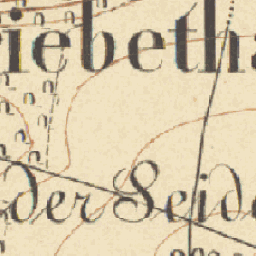 iebetha
der Seide